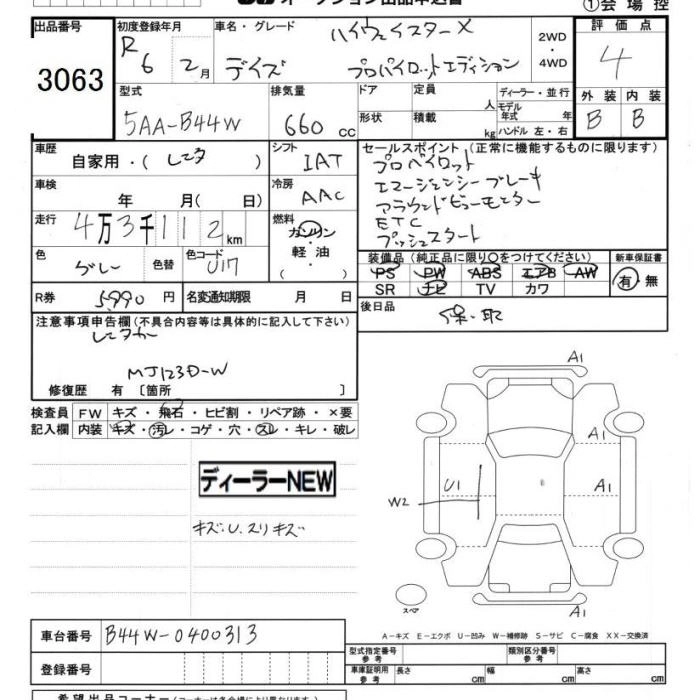 ①会場控
オークション出品申込書
出品番号 3063
初度登録年月 R6 2月
車名・グレード ハイウェイスターX
デイズ プロパイロットエディション
2WD・4WD
評価点 4
型式 5AA-B44W
排気量 660cc
ドア
定員 人
形状
積載 kg
ディーラー・並行
モデル年式 年
ハンドル 左・右
外装 B
内装 B
車歴 自家用・(レンタ)
シフト IAT
セールスポイント(正常に機能するものに限ります)
プロパイロット
エマージェンシーブレーキ
アラウンドビューモニター
ETC
プッシュスタート
車検 年 月(日)
冷房 AAC
走行 4万3千112km
燃料 ガソリン
軽油
( )
色 グレー
色替
色コード U17
装備品(純正品に限り○をつけてください)
PS PW ABS エアB AW
SR ナビ TV カワ
新車保証書
有・無
R券 5,990円
名変通知期限 月 日
後日品 保・取
注意事項申告欄(不具合内容等は具体的に記入して下さい)
レンタカー
MJ123D-W
修復歴 有〔箇所 〕
検査員記入欄
FW キズ・飛石・ヒビ割・リペア跡・×要
内装 キズ・汚レ・コゲ・穴・スレ・キレ・破レ
ディーラーNEW
キズ・U・スリキズ
A1
A1
U1
A1
W2
A1
スペア
A-キズ E-エクボ U-凹み W-補修跡 S-サビ C-腐食 XX-交換済
車台番号 B44W-0400313
登録番号
型式指定番号 参考
類別区分番号 参考
車庫証明用 参考 長さ cm 幅 cm 高さ cm
希望出品コーナー